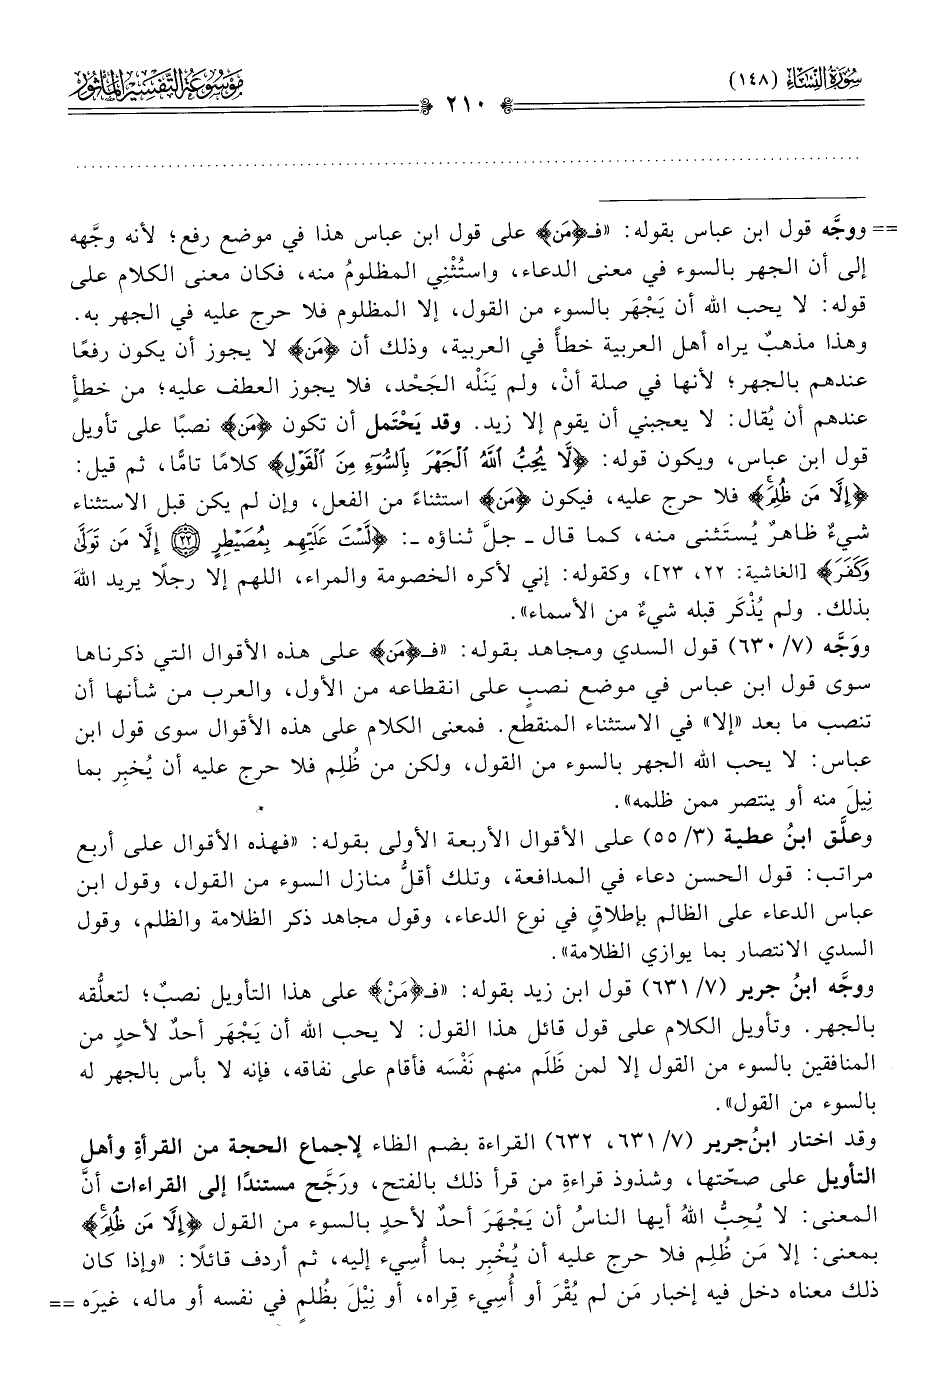 سُورَةُ النِّسَاءِ (١٤٨)
٢١٠
مَوْسُوعَةُ التَّفْسِيرِ المَأْثُورِ
== ووجَّه قول ابن عباس بقوله: «فـ﴿مَن﴾ على قول ابن عباس هذا في موضع رفع؛ لأنه وجَّهه
إلى أن الجهر بالسوء في معنى الدعاء، واستُثْنِي المظلومُ منه، فكان معنى الكلام على
قوله: لا يحب الله أن يَجْهَر بالسوء من القول، إلا المظلوم فلا حرج عليه في الجهر به.
وهذا مذهبٌ يراه أهل العربية خطأً في العربية، وذلك أن ﴿مَن﴾ لا يجوز أن يكون رفعًا
عندهم بالجهر؛ لأنها في صلة أنْ، ولم يَنَله الجَحْد، فلا يجوز العطف عليه؛ من خطأٍ
عندهم أن يُقال: لا يعجبني أن يقوم إلا زيد. وقد يَحْتمل أن تكون ﴿مَن﴾ نصبًا على تأويل
قول ابن عباس، ويكون قوله: ﴿لَّا يُحِبُّ ٱللَّهُ ٱلۡجَهۡرَ بِٱلسُّوٓءِ مِنَ ٱلۡقَوۡلِ﴾ كلامًا تامًّا، ثم قيل:
﴿إِلَّا مَن ظُلِمَۚ﴾ فلا حرج عليه، فيكون ﴿مَن﴾ استثناءً من الفعل، وإن لم يكن قبل الاستثناء
شيءٌ ظاهرٌ يُستَثنى منه، كما قال ـ جلَّ ثناؤه ـ: ﴿لَّسۡتَ عَلَيۡهِم بِمُصَيۡطِرٍ ۝٢٢ إِلَّا مَن تَوَلَّىٰ
وَكَفَرَ﴾ [الغاشية: ٢٢، ٢٣]، وكقوله: إني لأكره الخصومة والمراء، اللهم إلا رجلًا يريد اللهَ
بذلك. ولم يُذْكَر قبله شيءٌ من الأسماء».
ووَجَّه (٧/ ٦٣٠) قول السدي ومجاهد بقوله: «فـ﴿مَن﴾ على هذه الأقوال التي ذكرناها
سوى قول ابن عباس في موضع نصبٍ على انقطاعه من الأول، والعرب من شأنها أن
تنصب ما بعد «إلا» في الاستثناء المنقطع. فمعنى الكلام على هذه الأقوال سوى قول ابن
عباس: لا يحب الله الجهر بالسوء من القول، ولكن من ظُلِم فلا حرج عليه أن يُخبِر بما
نِيلَ منه أو ينتصر ممن ظلمه».
وعلَّق ابنُ عطية (٣/ ٥٥) على الأقوال الأربعة الأولى بقوله: «فهذه الأقوال على أربع
مراتب: قول الحسن دعاء في المدافعة، وتلك أقلُّ منازل السوء من القول، وقول ابن
عباس الدعاء على الظالم بإطلاقٍ في نوع الدعاء، وقول مجاهد ذكر الظلامة والظلم، وقول
السدي الانتصار بما يوازي الظلامة».
ووجَّه ابنُ جرير (٧/ ٦٣١) قول ابن زيد بقوله: «فـ﴿مَنْ﴾ على هذا التأويل نصبٌ؛ لتعلُّقه
بالجهر. وتأويل الكلام على قول قائل هذا القول: لا يحب الله أن يَجْهَر أحدٌ لأحدٍ من
المنافقين بالسوء من القول إلا لمن ظَلَم منهم نَفْسَه فأقام على نفاقه، فإنه لا بأس بالجهر له
بالسوء من القول».
وقد اختار ابنُ جرير (٧/ ٦٣١، ٦٣٢) القراءة بضم الظاء لإجماع الحجة من القرأةِ وأهل
التأويل على صحّتها، وشذوذ قراءةِ من قرأ ذلك بالفتح، ورَجَّح مستندًا إلى القراءات أنَّ
المعنى: لا يُحِبُّ اللهُ أيها الناسُ أن يَجْهَرَ أحدٌ لأحدٍ بالسوء من القول ﴿إِلَّا مَن ظُلِمَۚ﴾
بمعنى: إلا مَن ظُلِم فلا حرج عليه أن يُخْبِر بما أُسِيء إليه، ثم أردف قائلًا: «وإذا كان
ذلك معناه دخل فيه إخبار مَن لم يُقْرَ أو أُسِيء قِراه، أو نِيْلَ بظُلمٍ في نفسه أو ماله، غيرَه ==